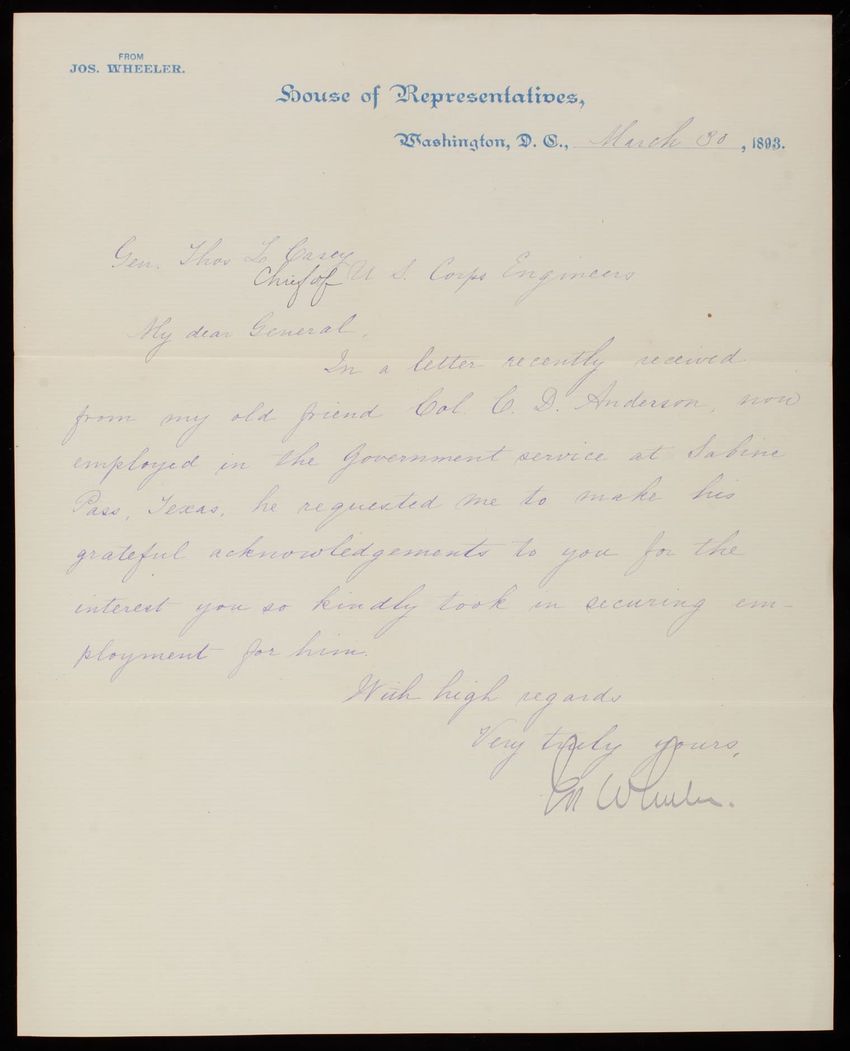 FROM
JOS. WHEELER.
House of Representatives,
Washington, D. C., March 30, 1893.
Gen. Thos L. Casey
Chief of U. S. Corps Engineers
My dear General,
In a letter recently received
from my old friend Col. C. D. Anderson, now
employed in the Government service at Sabine
Pass, Texas, he requested me to make his
grateful acknowledgements to you for the
interest you so kindly took in securing em-
ployment for him.
With high regards
Very truly yours,
Jos Wheeler.